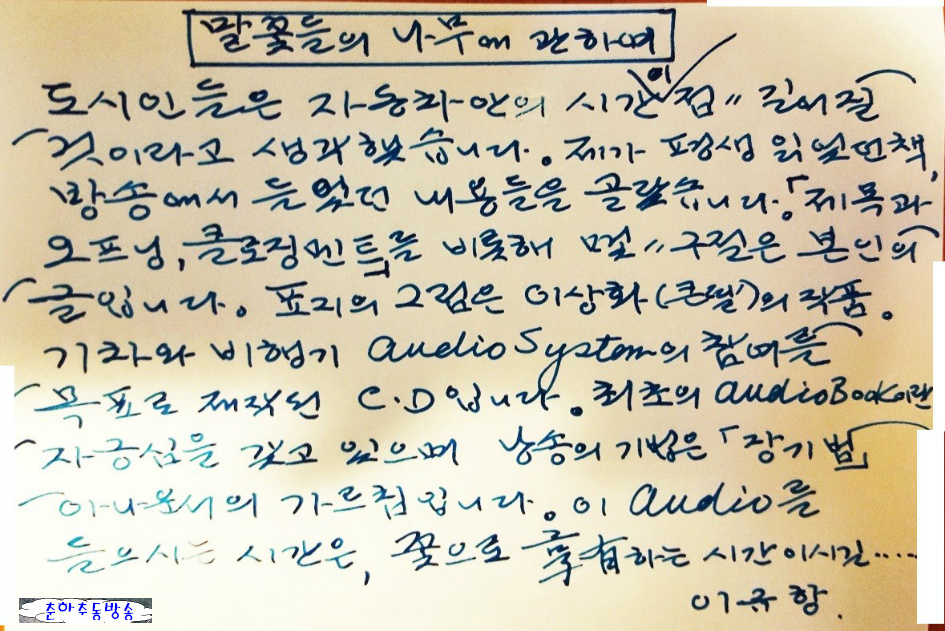 말꽃들의 나무에 관하여
도시인들은 자동차안의 시간이 점〃 길어질
것이라고 생각했습니다. 제가 평생 읽었던 책,
방송에서 들었던 내용들을 골랐습니다.「제목과
오프닝, 클로징멘트」를 비롯해 몇〃 구절은 본인의
글입니다. 표지의 그림은 이상화(큰딸)의 작품.
기차와 비행기 audio System의 참여를
목표로 제작된 C.D입니다. 최초의 audio Book이란
자긍심을 갖고 있으며 낭송의 기법은「장기범」
아나운서의 가르침입니다. 이 audio를
들으시는 시간은, 꽃으로 享有하는 시간이시길.....
이규항.
춘하추동방송